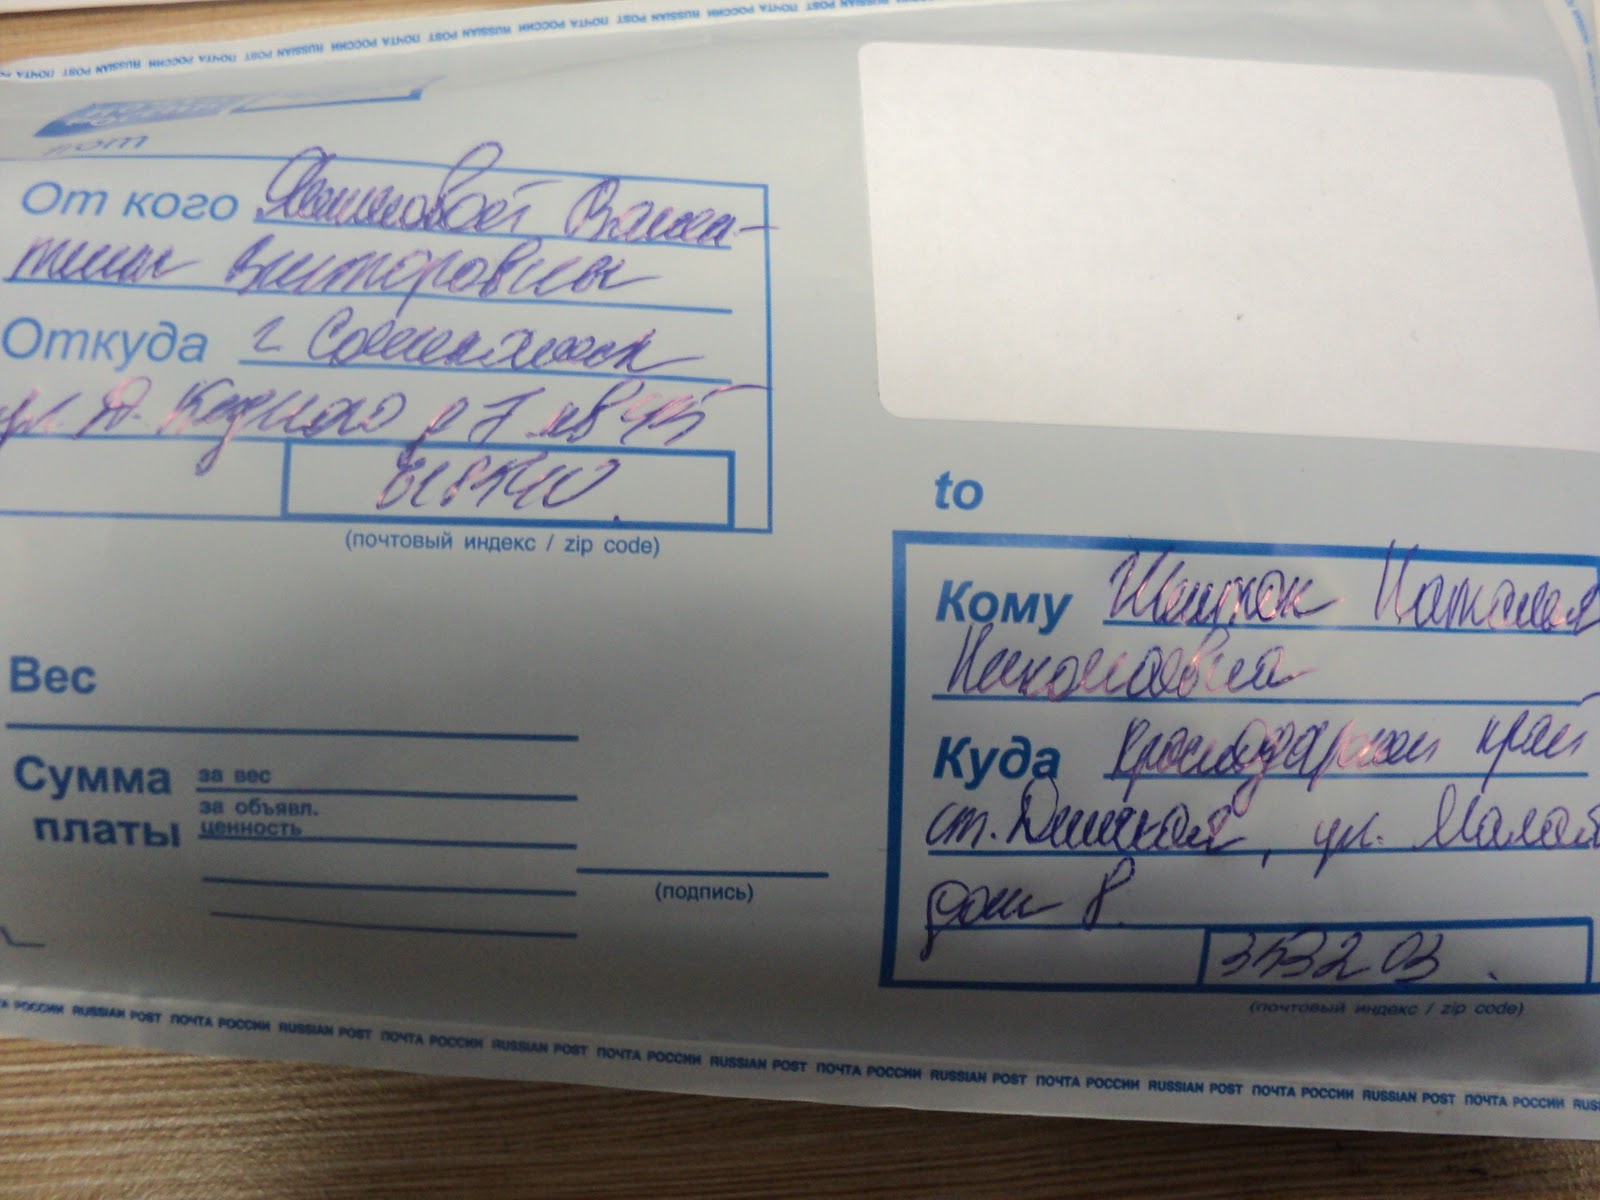 ПОЧТА РОССИИ RUSSIAN POST ПОЧТА РОССИИ RUSSIAN POST ПОЧТА РОССИИ RUSSIAN POST ПОЧТА РОССИИ RUSSIAN POST
from
От кого Вален-
тины Викторовны
Откуда г Соликамск
ул. д 7 кв 45
618540
(почтовый индекс / zip code)
to
Кому Наталья
Николаевна
Куда Краснодарский край
ст. Динская, ул. Малая
дом 8.
353203
(почтовый индекс / zip code)
Вес
Сумма платы
за вес
за объявл.
ценность
(подпись)
РОССИИ RUSSIAN POST ПОЧТА РОССИИ RUSSIAN POST ПОЧТА РОССИИ RUSSIAN POST ПОЧТА РОССИИ RUSSIAN POST ПОЧТА РОССИИ RUSSIAN POST ПОЧТА РОССИИ RUSSIAN POST ПОЧТА РОССИИ RUSSIAN POST ПОЧТА РОССИИ RUS